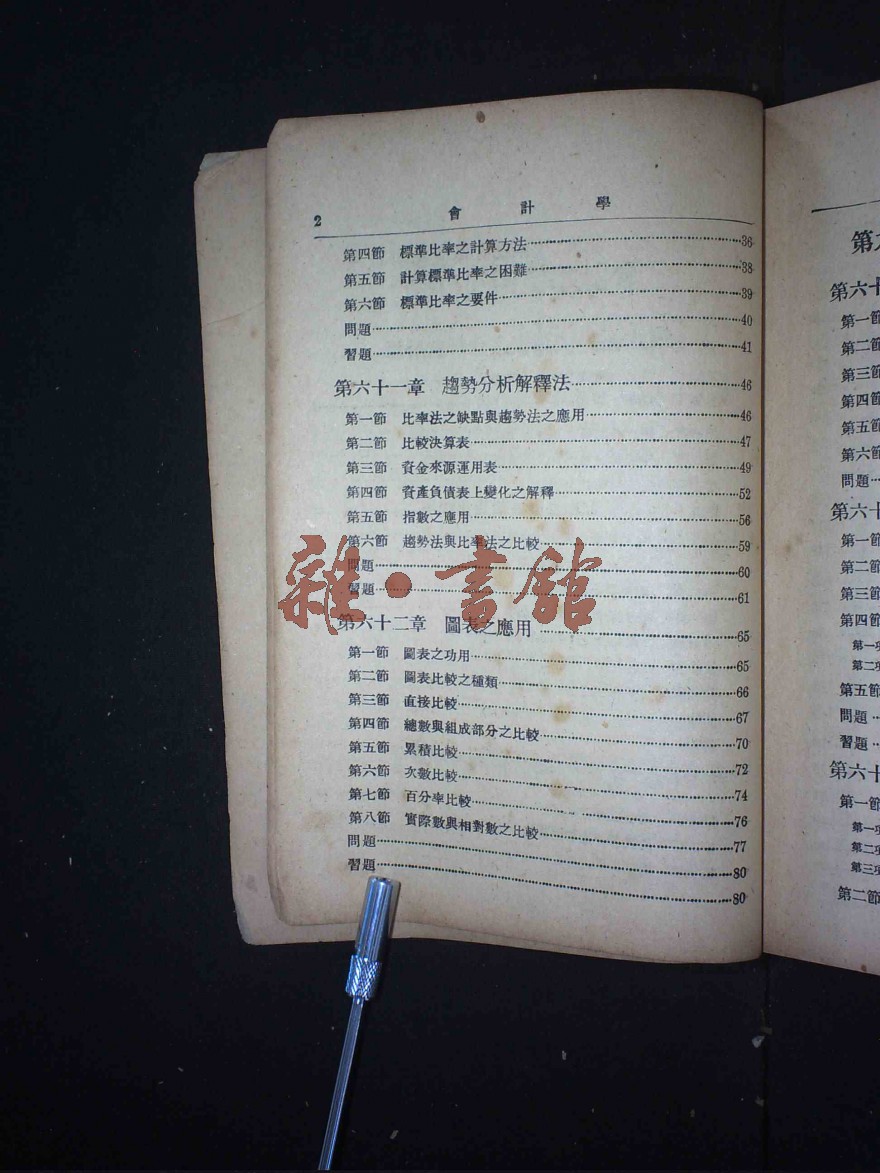 2 會計學
第四節 標準比率之計算方法 36
第五節 計算標準比率之困難 38
第六節 標準比率之要件 39
問題 40
習題 41
第六十一章 趨勢分析解釋法 46
第一節 比率法之缺點與趨勢法之應用 46
第二節 比較決算表 47
第三節 資金來源運用表 49
第四節 資產負債表上變化之解釋 52
第五節 指數之應用 56
第六節 趨勢法與比率法之比較 59
問題 60
習題 61
第六十二章 圖表之應用 65
第一節 圖表之功用 65
第二節 圖表比較之種類 66
第三節 直接比較 67
第四節 總數與組成部分之比較 70
第五節 累積比較 72
第六節 次數比較 74
第七節 百分率比較 76
第八節 實際數與相對數之比較 77
問題 80
習題 80
雜·書館
第六十
第一節
第二節
第三節
第四節
第五節
第六節
問題
第六十
第一節
第二節
第三節
第四節
第一項
第二項
第五節
問題
習題
第六十
第一節
第一項
第二項
第三項
第二節